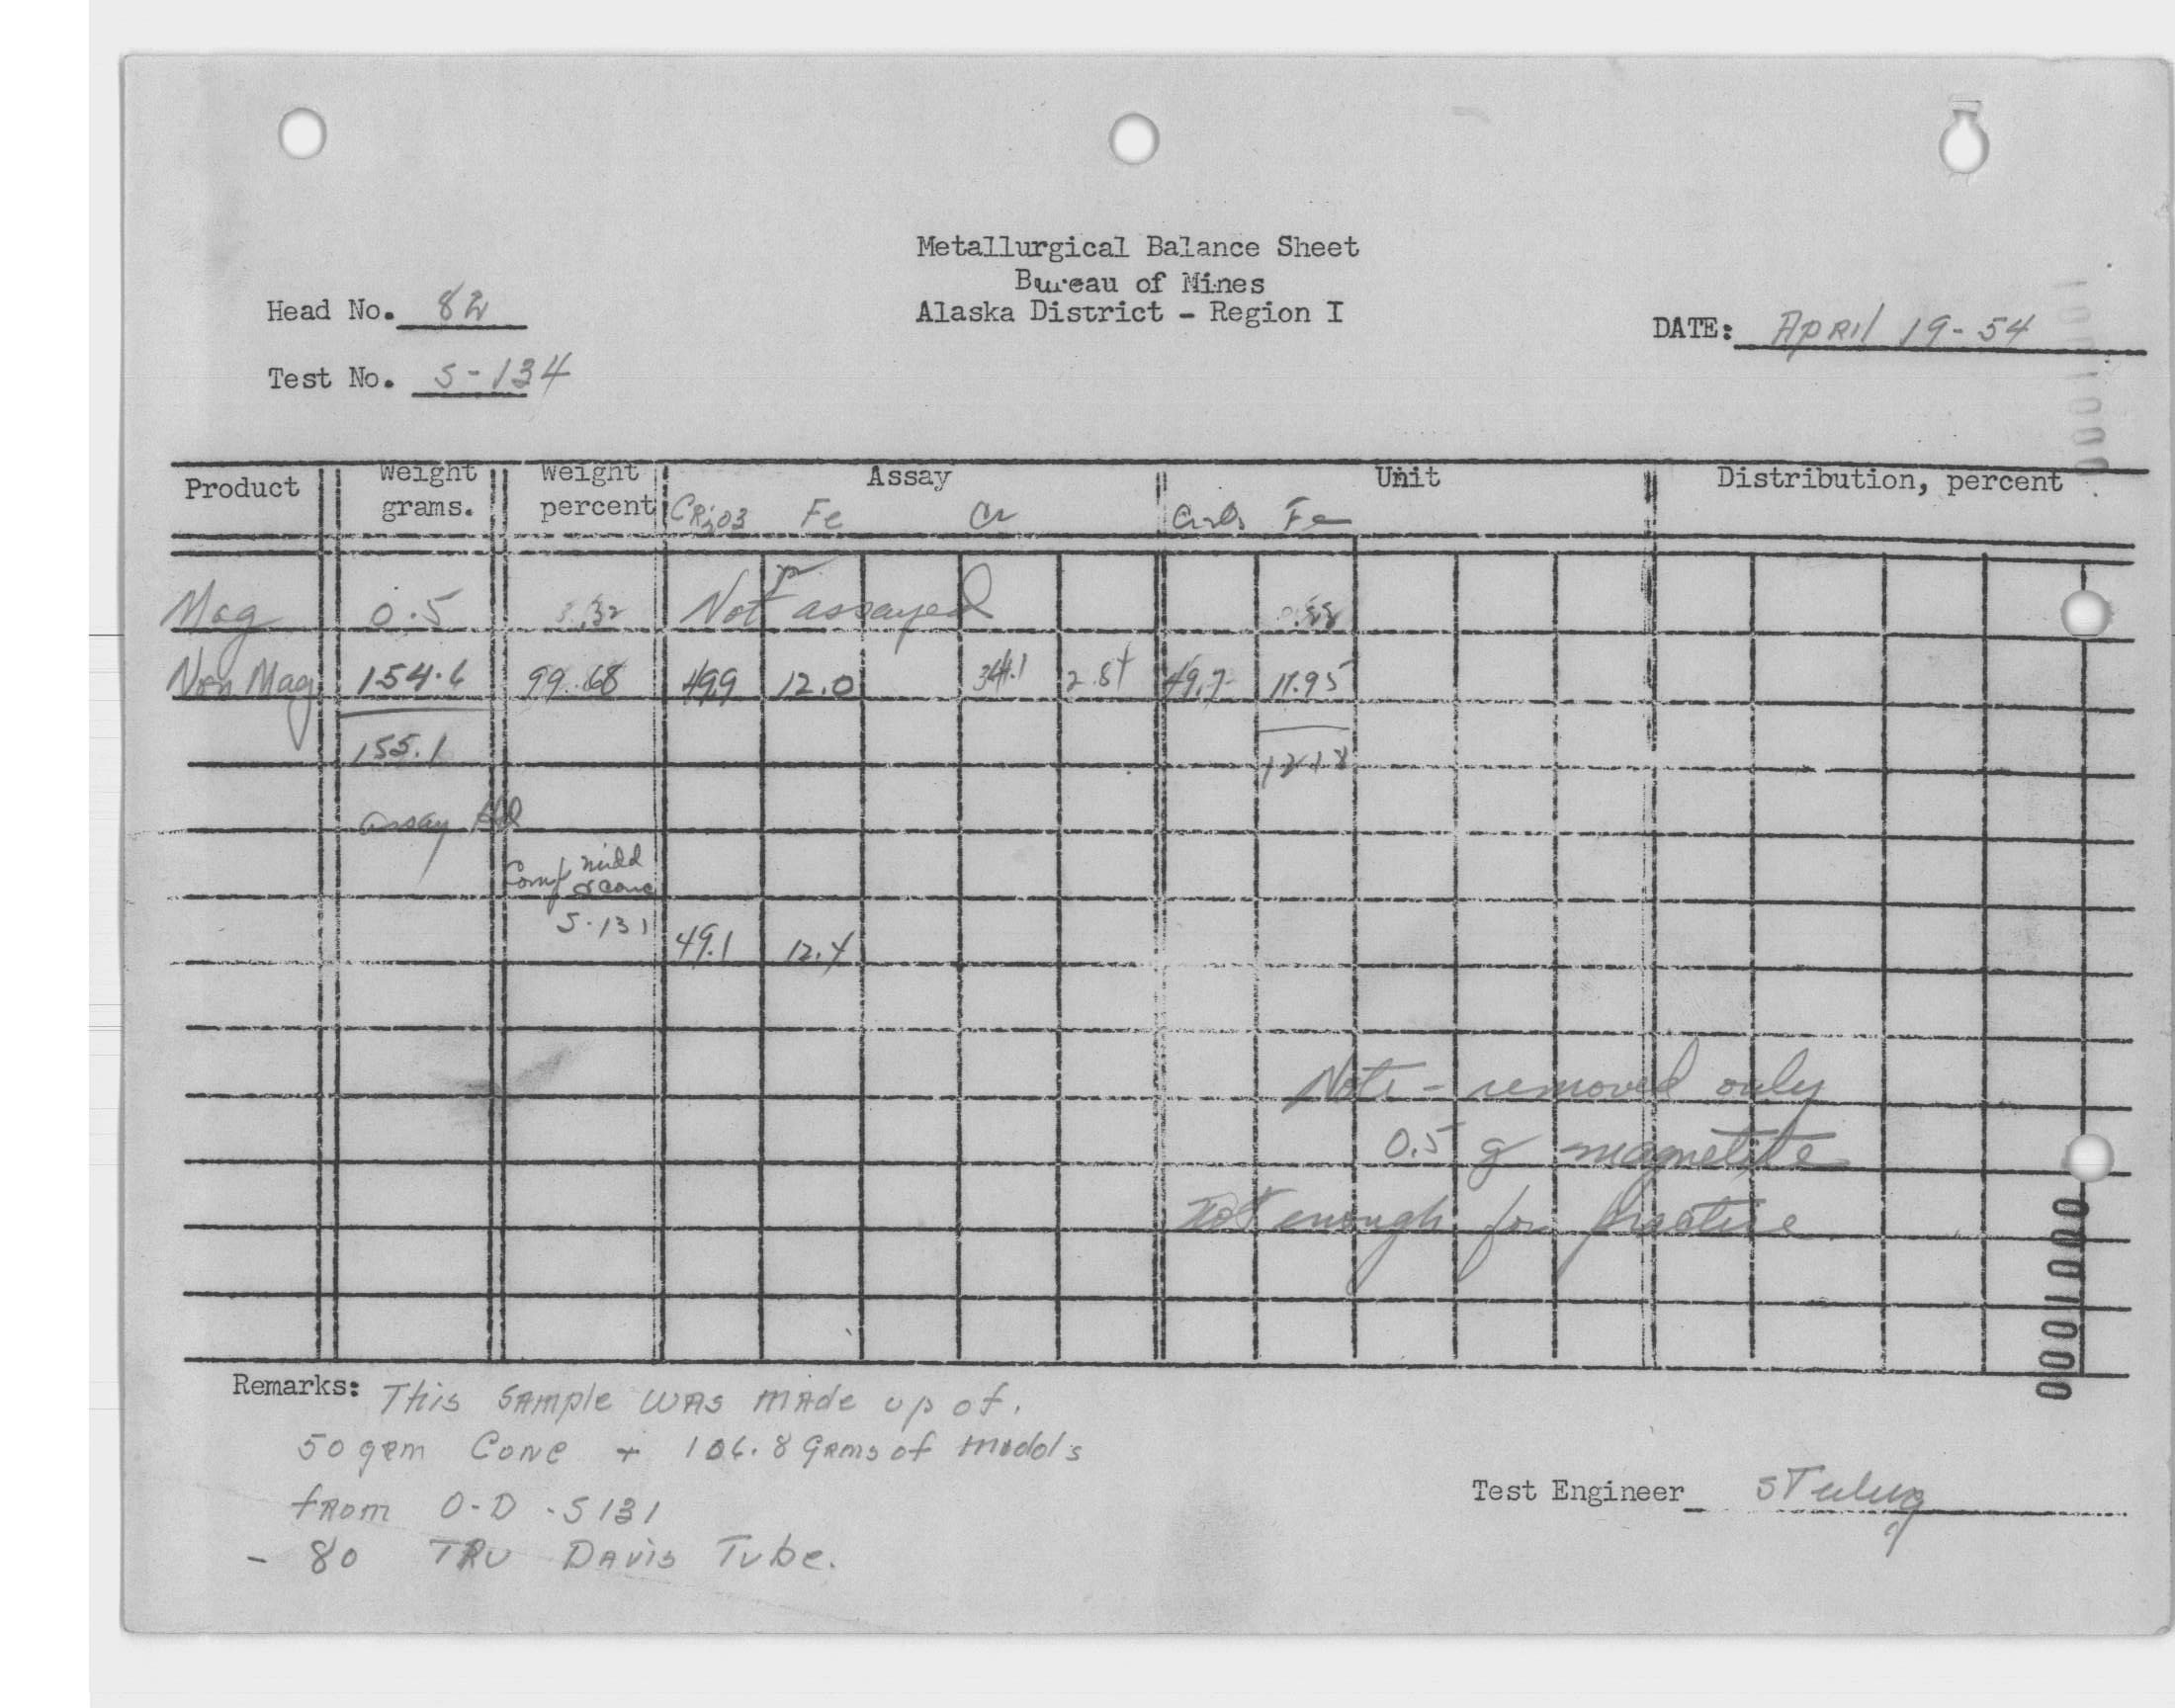 Metallurgical Balance Sheet
Bureau of Mines
Alaska District - Region I
Head No. 82
DATE: APRIl 19-54
Test No. S-134
Product Weight grams. Weight percent Assay Unit Distribution, percent
CR2O3 Fe Cr Fe
Mag 0.5 Not assayed
Non Mag 154.6 99.68 49.9 12.0 34.1 49.7 11.95
155.1
assay
midd
& conc
S-131
49.1 12.4
Note - removed only
0.5 g magnetite
not enough for practice
Remarks: This SAmple WAS mAde up of.
50 grm Conc + 106.8 Grms of midd's
fRom O-D -S131
- 80 TRU DAvis Tube.
Test Engineer
0001000